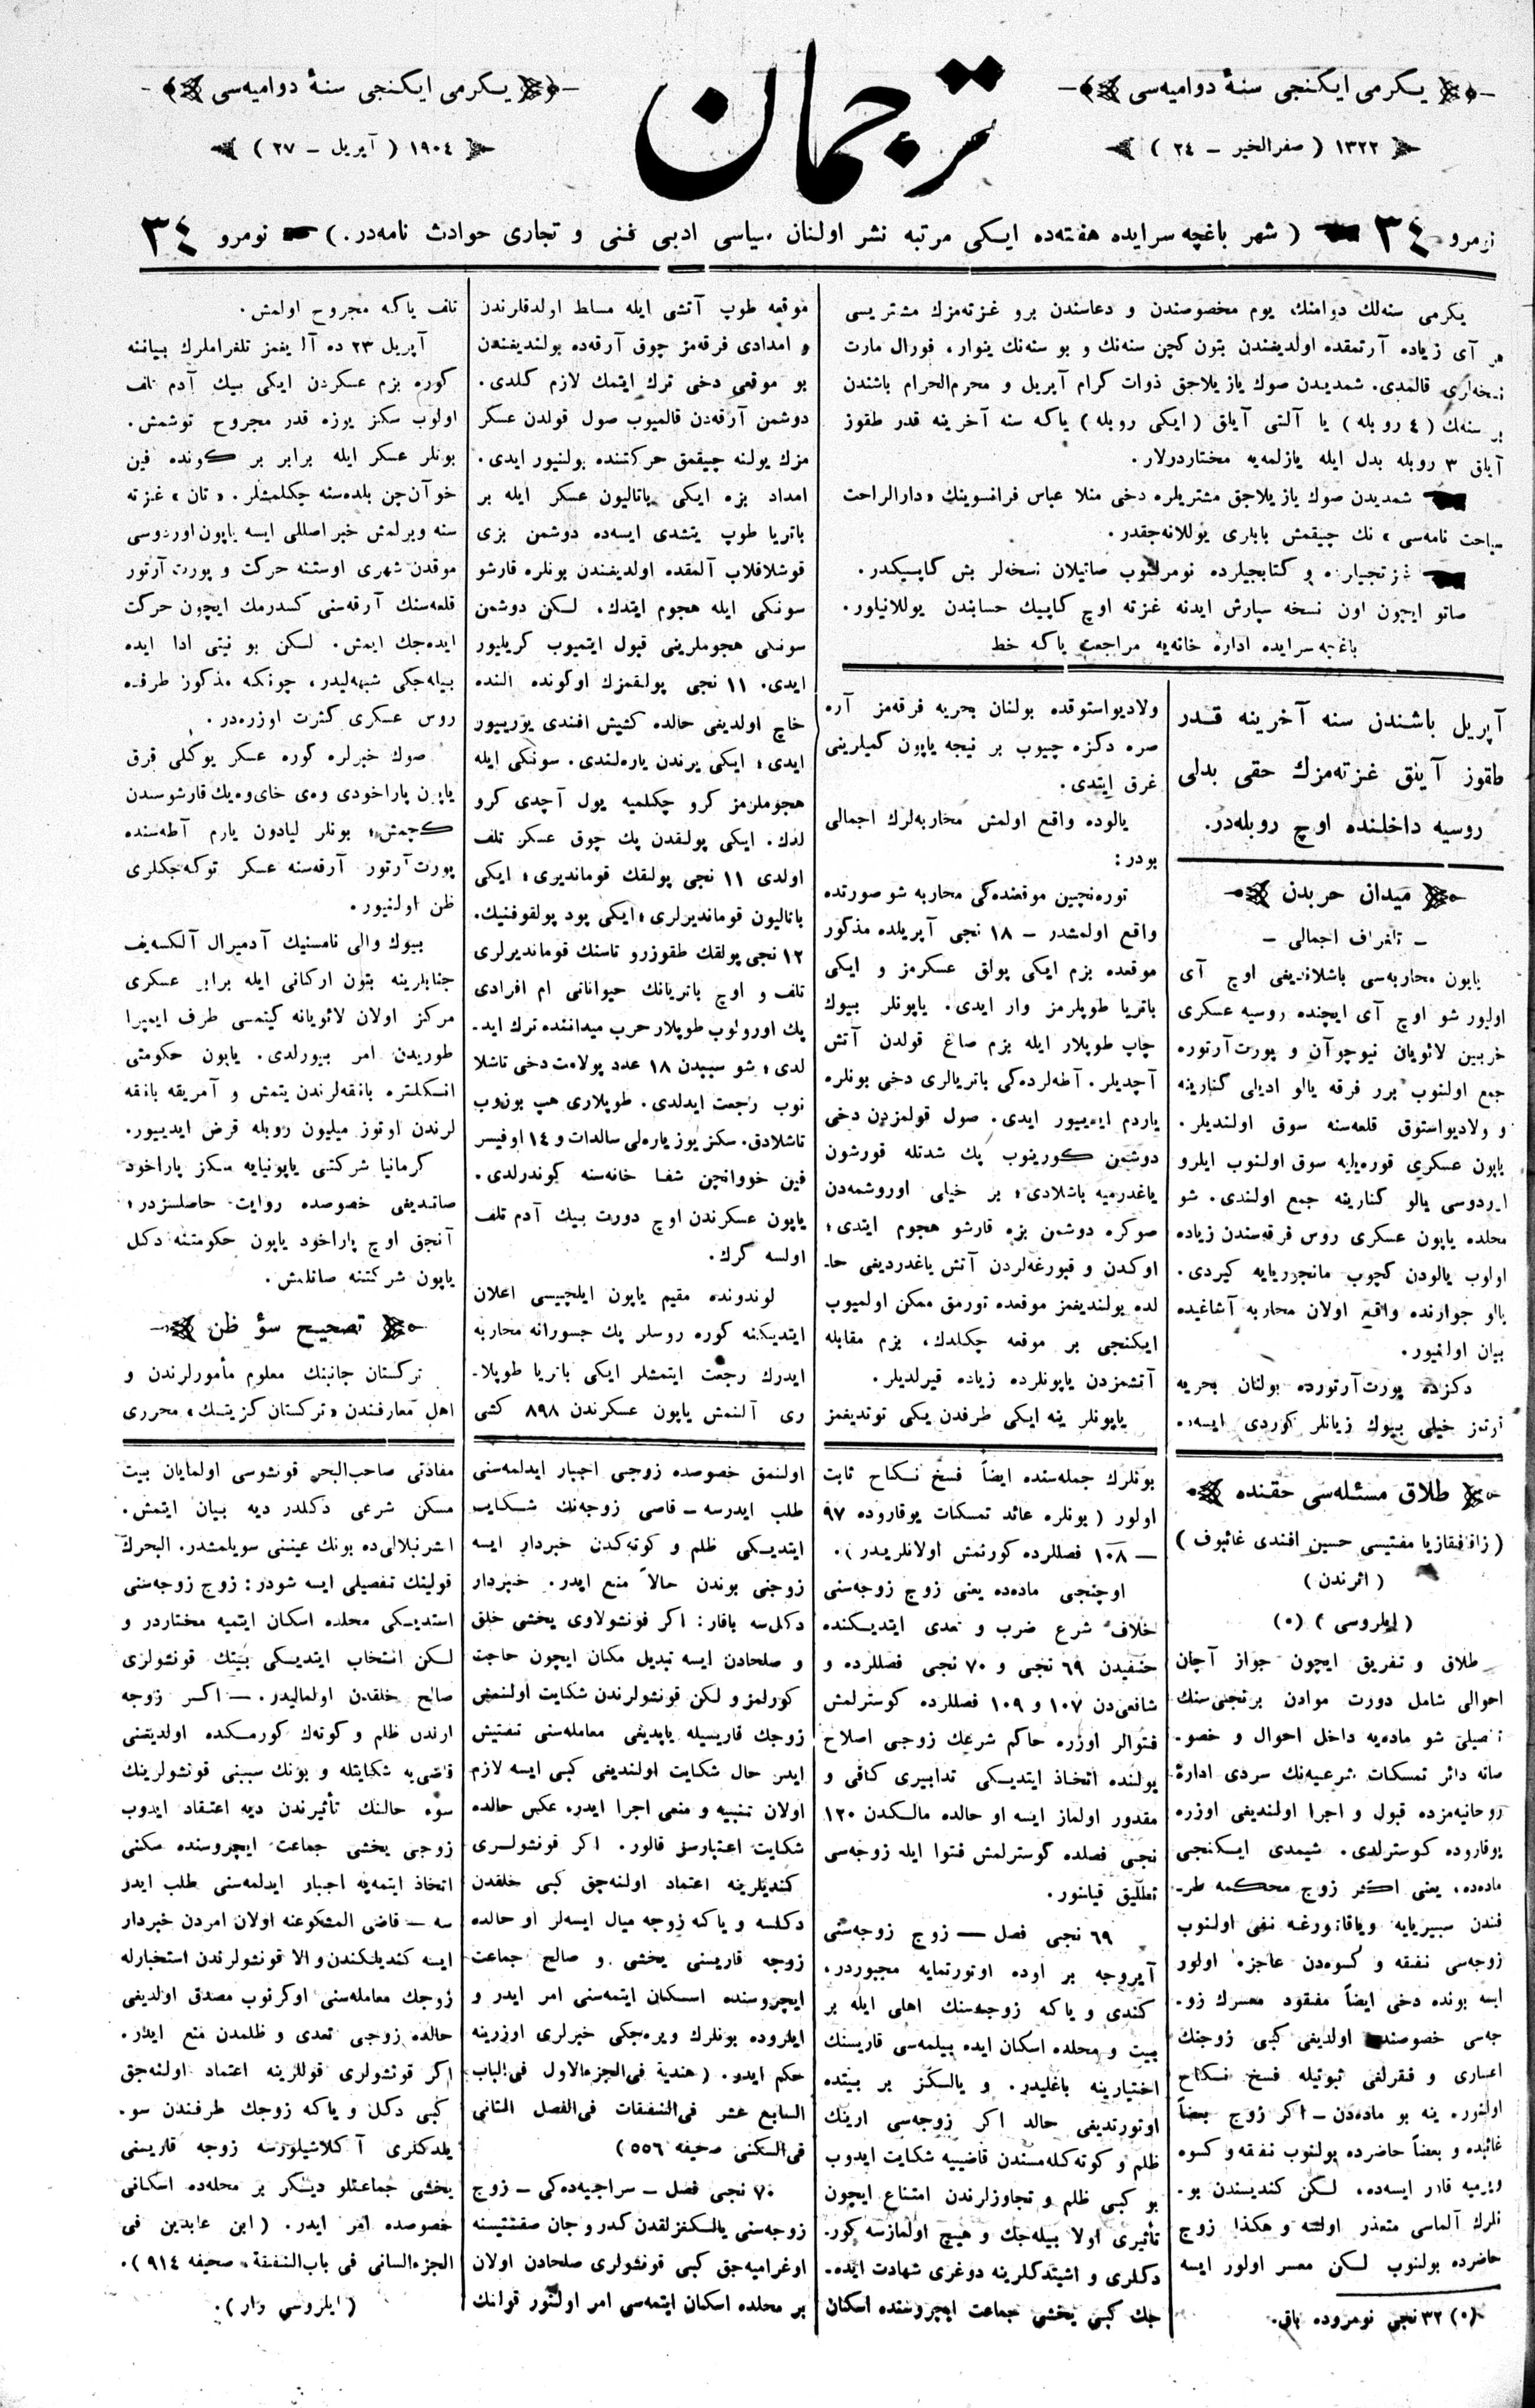 یكرمی ایكنجی سنهٔ دوامیه‌سی
ترجمان
یكرمی ایكنجی سنهٔ دوامیه‌سی
۱۳۲۲ ( صفرالخیر ـ ۲٤ )
۱۹۰٤ ( آپریل ـ ۲۷ )
نومرو ۳٤ ( شهر باغچه سرایده هفته‌ده ایكی مرتبه نشر اولنان سیاسی ادبی فنی و تجاری حوادث نامه‌در. ) نومرو ۳٤
یكرمی سنه‌لك دوامنك یوم مخصوصندن و دعاسندن برو غزته‌مزك مشتریسی
هر آی زیاده آرتمقده اولدیغندن بتون كچن سنه‌نك و بو سنه‌نك ینوار، فورال مارت
نسخه‌لری قالمدی. شمدیدن صوك یازیلاجق ذوات كرام آپریل و محرم‌الحرام باشندن
بر سنه‌لك ( ٤ روبله ) یا آلتی آیلق ( ایكی روبله ) یاكه سنه آخرینه قدر طقوز
آیلق ۳ روبله بدل ایله یازلمه‌یه مختاردرلار.
شمدیدن صوك یازیلاجق مشتریلره دخی منلا عباس فرانسوینك «دارالراحت
سیاحت نامه‌سی» نك چیقمش بابلری یوللانه‌جقدر.
غزتجیلرده و كتابجیلرده نومرلنوب صاتیلان نسخه‌لر بش كاپیكدر.
صاتو ایچون اون نسخه سپارش ایدنه غزته اوچ كاپیك حسابندن یوللانیلور.
باغچه سرایده اداره خانه‌یه مراجعت یاكه خط
آپریل باشندن سنه آخرینه قدر
طقوز آینق غزته‌مزك حقی بدلی
روسیه داخلنده اوچ روبله‌در.
میدان حربدن
ـ تلغراف اجمالی ـ
یاپون محاربه‌سی باشلاندیغی اوچ آی
اولیور شو اوچ آی ایچنده روسیه عسكری
خربین لائویان نیوچوآن و پورت آرتوره
جمع اولنوب برر فرقه یالو ادیلی كنارینه
و ولادیواستوق قلعه‌سنه سوق اولندیلر.
یاپون عسكری قوره‌یایه سوق اولنوب ایلرو
اردوسی یالو كنارینه جمع اولندی. شو
محلده یاپون عسكری روس فرقه‌سندن زیاده
اولوب یالودن كچوب مانجوریایه كیردی.
یالو جوارنده واقع اولان محاربه آشاغیده
بیان اولنیور.
دكزده پورت آرتورده بولنان بحریه
فرقه‌مز خیلی بیوك زیانلر كوردی ایسه‌ده
ولادیواستوقده بولنان بحریه فرقه‌مز آره
صره دكزه چیوب بر نیجه یاپون كمیلرینی
غرق ایتدی.
یالوده واقع اولمش محاربه‌لرك اجمالی
بودر:
توره‌نچین موقعنده‌كی محاربه شو صورتده
واقع اولمشدر ـ ۱۸ نجی آپریلده مذكور
موقعده بزم ایكی پولق عسكرمز و ایكی
باتریا طوپلرمز وار ایدی. یاپونلر بیوك
چاپ طوپلار ایله بزم صاغ قولدن آتش
آچدیلر. آطه‌لرده‌كی باتریالری دخی بونلره
یاردم ایده‌ییور ایدی. صول قولمزدن دخی
دوشمن كورینوب پك شدتله قورشون
یاغدرمیه باشلادی؛ بر خیلی اوروشمه‌دن
صوكره دوشمن بزه قارشو هجوم ایتدی؛
اوكدن و قبورغه‌لردن آتش یاغدردیغی حا‌ـ
لده بولندیغمز موقعده تورمق ممكن اولمیوب
ایكنجی بر موقعه چكلدك. بزم مقابله
آتشمزدن یاپونلرده زیاده قیرلدیلر.
یاپونلر ینه ایكی طرفدن یكی توتدیغمز
موقعه طوپ آتشی ایله مسلط اولدقلرندن
و امدادی فرقه‌مز چوق آرقه‌ده بولندیغندن
بو موقعی دخی ترك ایتمك لازم كلدی.
دوشمن آرقه‌دن قالمیوب صول قولدن عسكر
مزك یولنه چیقمق حركتنده بولنیور ایدی.
امداد بزه ایكی باتالیون عسكر ایله بر
باتریا طوپ یتشدی ایسه‌ده دوشمن بزی
قوشلاقلاب آلمقده اولدیغندن بونلره قارشو
سونكی ایله هجوم ایتدك. لسكن دوشمن
سونكی هجوملرینی قبول ایتمیوب كریلیور
ایدی. ۱۱ نجی پولقمزك اوكونده النده
خاچ اولدیغی حالده كشیش افندی یوریپور
ایدی؛ ایكی یرندن یاره‌لندی. سونكی ایله
هجوملرمز كرو چكلمیه یول آچدی كرو
لدك. ایكی پولقدن پك چوق عسكر تلف
اولدی ۱۱ نجی پولقك قوماندیری؛ ایكی
باتالیون قوماندیرلری؛ ایكی پود پولقوفنیك.
۱۲ نجی پولقك طقوزرو تاسنك قوماندیرلری
تلف و اوچ باتریانك حیواناتی ام افرادی
پك اورولوب طوپلار حرب میداننده ترك اید‌ـ
لدی؛ شو سببدن ۱۸ عدد پولامت دخی تاشلا
نوب رجعت ایدلدی. طوپلاری هپ بوزوب
تاشلادق. سكز یوز یاره‌لی سالدات و ۱٤ اوفیسر
فین خووانچن شفا خانه‌سنه كوندرلدی.
یاپون عسكرندن اوچ دورت بیك آدم تلف
اولسه كرك.
لوندونده مقیم یاپون ایلچیسی اعلان
ایتدیكنه كوره روسلر پك جسورانه محاربه
ایدرك رجعت ایتمشلر ایكی باتریا طوپلا‌ـ
ری آلنمش یاپون عسكرندن ۸۹۸ كشی
تلف یاكه مجروح اولمش.
آپریل ۲۳ ده آلدیغمز تلغراملرك بیاننه
كوره بزم عسكردن ایكی بیك آدم تلف
اولوب سكز یوزه قدر مجروح توشمش.
بونلر عسكر ایله برابر بر كونده فین
خوآن‌چن بلده‌سنه چكلمشلر. «تان» غزته
سنه ویرلمش خبر اصللی ایسه یاپون اوردوسی
موقدن شهری اوستنه حركت و پورت آرتور
قلعه‌سنك آرقه‌سنی كسدرمك ایچون حركت
ایده‌جك ایمش. لسكن بو نیتی ادا ایده
بیله‌جكی شبهه‌لیدر، چونكه مذكور طرفده
روس عسكری كثرت اوزره‌در.
صوك خبرلره كوره عسكر یوكلی قرق
یاپون پاراخودی وه‌ی خای وه‌یك قارشوسندن
كچمش؛ بونلر لیادون یارم آطه‌سنده
پورت آرتور آرقه‌سنه عسكر توكه‌جكلری
ظن اولنیور.
بیوك والی نامسنیك آدمیرال آلكسه‌یف
جنابلرینه بتون اركانی ایله برابر عسكری
مركز اولان لائویانه كیتمسی طرف ایمپرا
طوریدن امر بیورلدی. یاپون حكومتی
انسكلتره بانقه‌لرندن یتمش و آمریقه بانقه
لرندن اوتوز میلیون روبله قرض ایدییور.
كرمانیا شركتی یاپونیایه سكز پاراخود
صاتدیغی خصوصده روایت حاصلسزدر؛
آنجق اوچ پاراخود یاپون حكومتنه دكل
یاپون شركتنه صاتلمش.
تصحیح سؤ ظن
تركستان جانبنك معلوم مأمورلرندن و
اهل معارفندن «تركستان كزیتسك» محرری
طلاق مسئله‌سی حقنده
( زاقافقازیا مفتیسی حسین افندی غائبوف )
( اثرندن )
( ایلروسی ) (٥)
طلاق و تفریق ایچون جواز آچان
احوالی شامل دورت موادن برنجی‌سنك
تفصیلی شو ماده‌یه داخل احوال و خصو‌ـ
صاته دائر تمسكات شرعیه‌نك سردی ادارهٔ
روحانیه‌مزده قبول و اجرا اولندیغی اوزره
یوقاروده كوسترلدی. شیمدی ایكنجی
ماده‌ده، یعنی اكثر زوج محكمه طر‌ـ
فندن سیبریایه ویاقانورغه نفی اولنوب
زوجه‌سی نفقه و كسوه‌دن عاجزه اولور
ایسه بونده دخی ایضاً مفقود معسرك زو‌ـ
جه‌سی خصوصنده اولدیغی كبی زوجنك
اعساری و فقرلغی ثبوتیله فسخ نكاح
اولنور. ینه بو ماده‌دن ـ اكر زوج بعضاً
غائبده و بعضاً حاضرده بولنوب نفقه و كسوه
ویرمیه قادر ایسه‌ده، لسكن كندیسندن بو‌ـ
نلرك آلماسی متعذر اولسه و هكذا زوج
حاضرده بولنوب لسكن معسر اولور ایسه
(٥) ۳۲ نجی نومروده باق.
بونلرك جمله‌سنده ایضاً فسخ نكاح ثابت
اولور ( بونلره عائد تمسكات یوقاروده ۹۷
— ۱۰۸ فصللرده كورنمش اولانلریدر ).
اوچنجی ماده‌ده یعنی زوج زوجه‌سنی
خلاف شرع ضرب و تعدی ایتدیكنده
حنفیدن ٦۹ نجی و ۷۰ نجی فصللرده و
شافعی‌دن ۱۰۷ و ۱۰۹ فصللرده كوسترلمش
فتوالر اوزره حاكم شرعك زوجی اصلاح
یولنده اتخاذ ایتدیكی تدابیری كافی و
مقدور اولماز ایسه او حالده مالكدن ۱۲۰
نجی فصلده كوسترلمش فتوا ایله زوجه‌سی
تطلیق قیلنور.
٦۹ نجی فصل — زوج زوجه‌سنی
آیروجه بر اوده اوتورتمایه مجبوردر.
كندی و یاكه زوجه‌سنك اهلی ایله بر
بیت و محلده اسكان ایده بیلمه‌سی قاریسنك
اختیارینه باغلیدر. و یالكز بر بیتده
اوتورتدیغی حالد اكر زوجه‌سی ارینك
ظلم و كوته‌كله‌مسندن قاضییه شكایت ایدوب
بو كبی ظلم و تجاوزلرندن امتناع ایچون
تأثیری اولا بیله‌جك و هیچ اولمازسه كور‌ـ
دكلری و اشیتدكلرینه دوغری شهادت ایده‌ـ
جك كبی یخشی جماعت ایچروسنده اسكان
اولنمق خصوصده زوجی اجبار ایدلمه‌سنی
طلب ایدرسه ـ قاصی زوجه‌نك شكایت
ایتدیكی ظلم و كوته‌كدن خبردار ایسه
زوجنی بوندن حالاً منع ایدر. خبردار
دكل‌سه باقار: اكر قونشولاوی یخشی خلق
و صلحادن ایسه تبدیل مكان ایچون حاجت
كورلمز و لكن قونشولرندن شكایت اولنمش
زوجك قاریسیله یاپدیغی معامله‌سنی تفتیش
ایدر حال شكایت اولندیغی كبی ایسه لازم
اولان تنبیه و منعی اجرا ایدر. عكس حالده
شكایت اعتبارسز قالور. اكر قونشولری
كندیلرینه اعتماد اولنه‌جق كبی خلقدن
دكلسه و یاكه زوجه میال ایسه‌لر او حالده
زوجه قاریسنی یخشی و صالح جماعت
ایچروسنده اسكان ایتمه‌سنی امر ایدر و
ایلروده بونلرك ویره‌جكی خبرلری اوزرینه
حكم ایدر. ( هندیة فی‌الجزءالاول فی‌الباب
السابع عشر فی‌النفقات فی‌الفصل الثانی
فی‌السكنی صحیفه ٥٥٦ )
۷۰ نجی فصل ـ سراجیه‌ده‌كی ـ زوج
زوجه‌سنی یالكزلقدن كدر و جان صقنتیسنه
اوغرامیه‌جق كبی قونشولری صلحادن اولان
بر محلده اسكان ایتمه‌سی امر اولنور قوانك
مفادنی صاحب‌البحر قونشوسی اولمایان بیت
مسكن شرعی دكلدر دیه بیان ایتمش.
اشرنبلالی‌ده بونك عیننی سویلمشدر. البحرك
قولینك تفصیلی ایسه شودر: زوج زوجه‌سنی
استدیكی محلده اسكان ایتمیه مختاردر و
لسكن انتخاب ایتدیكی بیتك قونشولری
صالح خلقدن اولمالیدر. — اكر زوجه
ارندن ظلم و كوتك كورمكده اولدیغنی
قاضی‌یه شكایتله و بونك سببنی قونشولرینك
سوء حالنك تأثیرندن دیه اعتقاد ایدوب
زوجی یخشی جماعت ایچروسنده مكنی
اتخاذ ایتمه‌یه اجبار ایدلمه‌سنی طلب ایدر
سه — قاضی المشكوعنه اولان امردن خبردار
ایسه كندیلكندن و الا قونشولرندن استخبارله
زوجك معامله‌سنی اوكرنوب مصدق اولدیغی
حالده زوجی تعدی و ظلمدن منع ایدر.
اكر قونشولری قوللرینه اعتماد اولنه‌جق
كبی دكل و یاكه زوجك طرفندن سو‌ـ
یله‌دكلری آكلاشیلورسه زوجه قاریسنی
یخشی جماعتلو دیكر بر محله‌ده اسكانی
خصوصده امر ایدر. ( ابن عابدین فی
الجزءالسانی فی باب‌النفقة، صحیفه ۹۱٤ ).
( ایلروسی وار ).